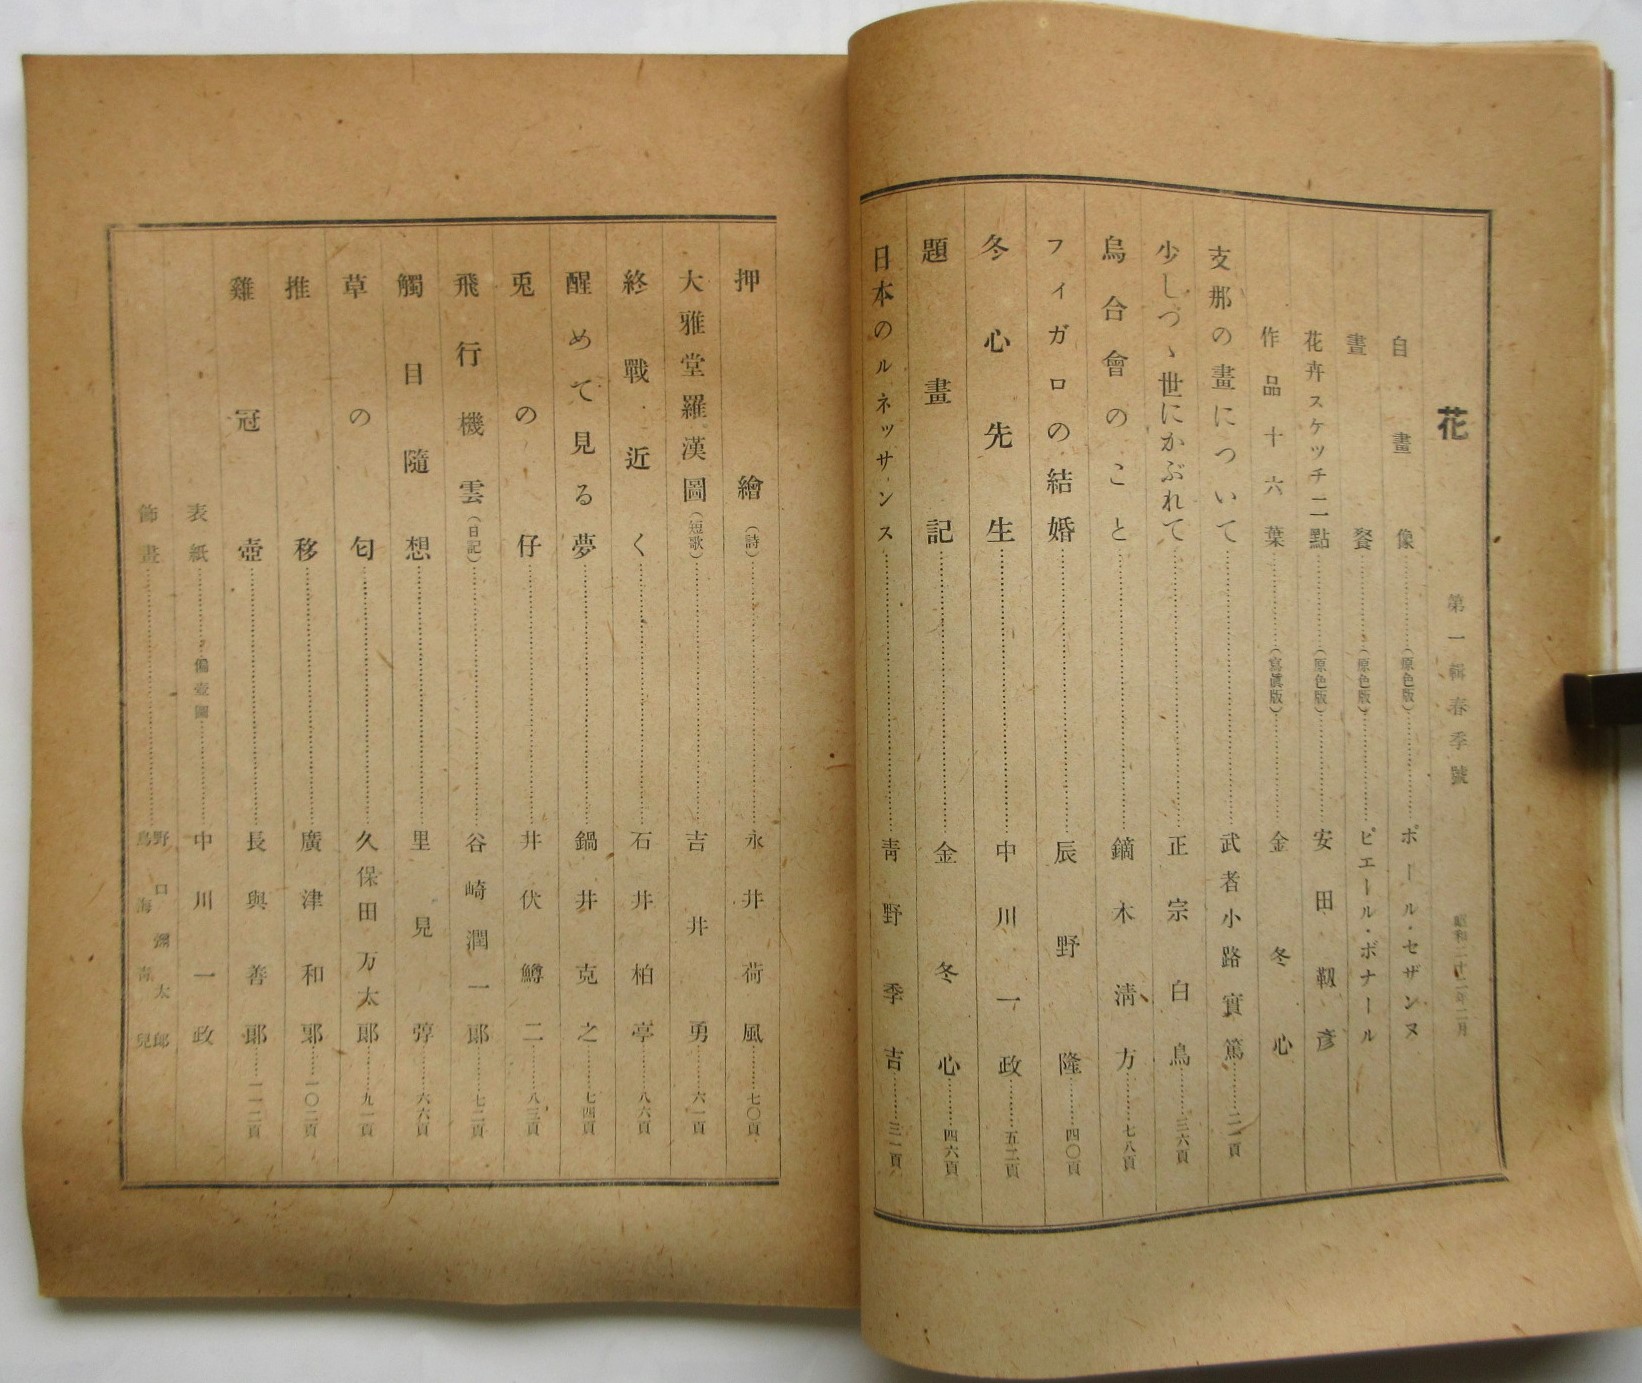 花 第一輯春季號 昭和二十二年二月
自畫像……(原色版)……ポール・セザンヌ
晝餐……(原色版)……ピエール・ボナール
花卉スケッチ二點……(原色版)……安田靱彦
作品十六葉……(寫眞版)……金冬心
支那の畫について……武者小路實篤……二一頁
少しづゝ世にかぶれて……正宗白鳥……三六頁
烏合會のこと……鏑木淸方……七八頁
フィガロの結婚……辰野隆……四〇頁
冬心先生……中川一政……五二頁
題畫記……金冬心……四六頁
日本のルネッサンス……靑野季吉……三一頁
押繪(詩)……永井荷風……七〇頁
大雅堂羅漢圖(短歌)……吉井勇……六一頁
終戰近く……石井柏亭……八六頁
醒めて見る夢……鍋井克之……七四頁
兎の仔……井伏鱒二……八三頁
飛行機雲(日記)……谷崎潤一郞……七二頁
觸目隨想……里見弴……六六頁
草の匂……久保田万太郞……九一頁
推移……廣津和郞……一〇二頁
雞冠壺……長與善郞……一一二頁
表紙……偏壺圖……中川一政
飾畫……野口彌太郞 鳥海靑兒